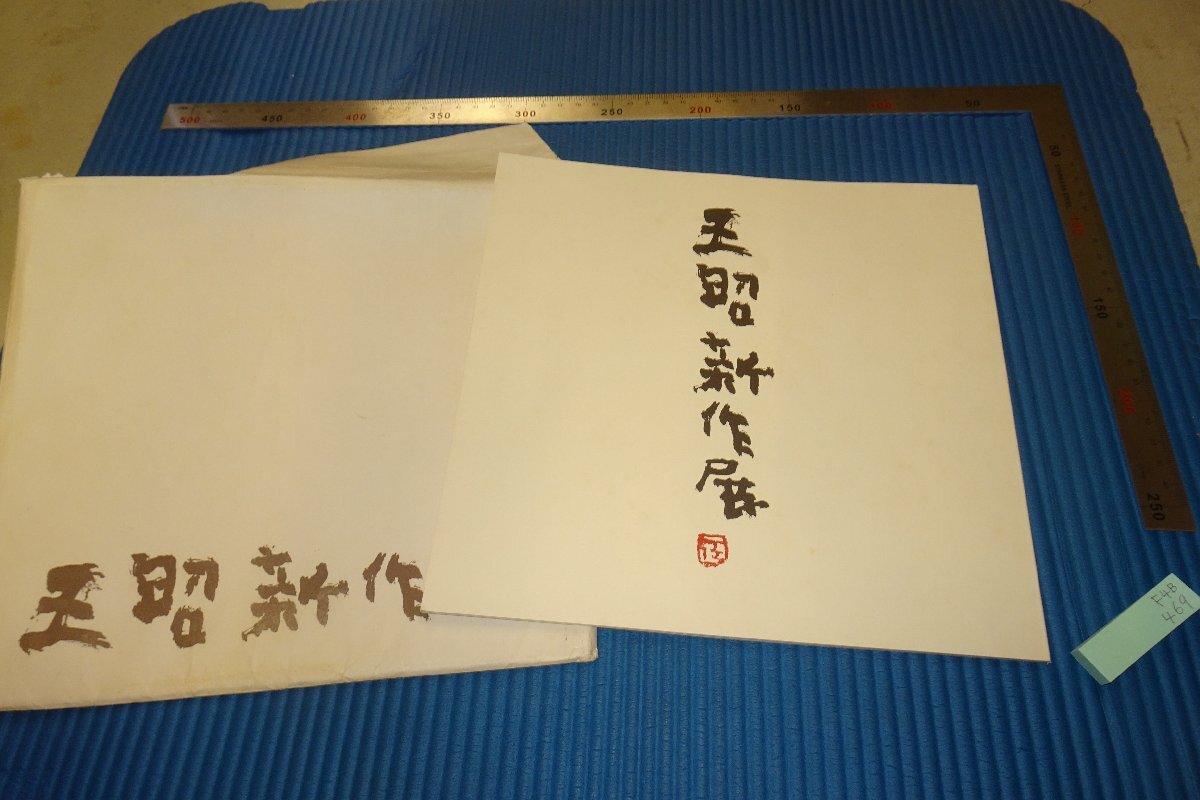 500 450 400 350 300 250 200 150 100 50
50
100
150
200
250
王昭新作展
王昭新作
F4B
469